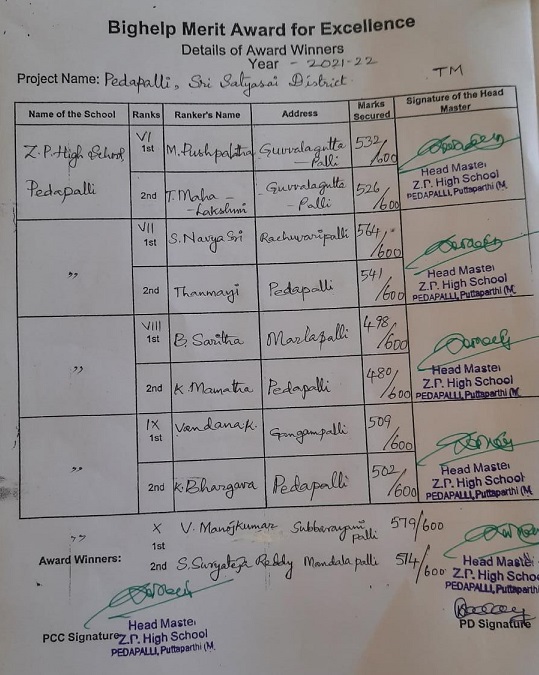 Bighelp Merit Award for Excellence
Details of Award Winners
Year - 2021-22
Project Name: Pedapalli, Sri Satyasai District.
TM
Name of the School Ranks Ranker's Name Address Marks Secured Signature of the Head Master
Z.P. High School Pedapalli VI 1st M. Pushpalatha Guvvalagutta - Palli 532/600
Head Master
Z.P. High School
PEDAPALLI, Puttaparthi (M.
2nd T. Maha - - Lakshmi Guvvalagutta - Palli 526/600
" VII 1st S. Navya Sri Rachuvaripalli 564/600
Head Master
Z.P. High School
PEDAPALLI, Puttaparthi (M.
2nd Thanmayi Pedapalli 541/600
" VIII 1st B. Saritha Marlapalli 498/600
Head Master
Z.P. High School
PEDAPALLI, Puttaparthi (M.
2nd K. Mamatha Pedapalli 480/600
" IX 1st Vandana K. Gangampalli 509/600
Head Master
Z.P. High School
PEDAPALLI, Puttaparthi (M.
2nd K. Bhargava Pedapalli 502/600
" X 1st V. Manojkumar Subbarayani palli 579/600
Award Winners: 2nd S. Suryateja Reddy Mandala palli 574/600
Head Master
Z.P. High Schoo
PEDAPALLI, Puttaparthi
PCC Signature
Head Master
Z.P. High School
PEDAPALLI, Puttaparthi (M.
PD Signature